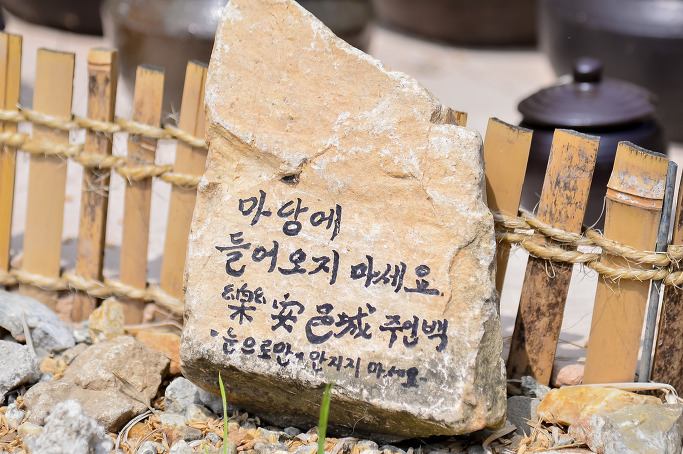 마당에
들어오지 마세요
樂安邑城 주인백
-눈으로만- 만지지 마세요-